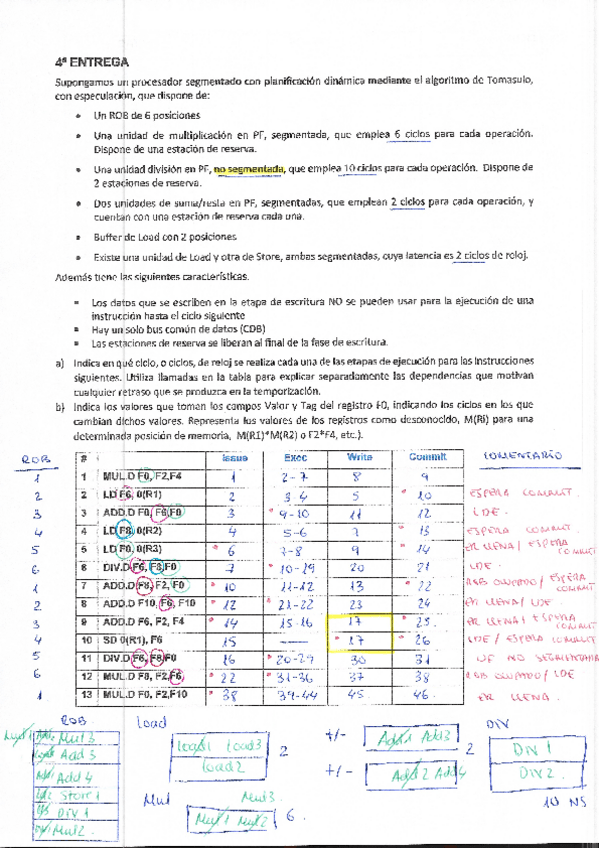 4ª ENTREGA
Supongamos un procesador segmentado con planificación dinámica mediante el algoritmo de Tomasulo,
con especulación, que dispone de:
• Un ROB de 6 posiciones
• Una unidad de multiplicación en PF, segmentada, que emplea 6 ciclos para cada operación.
Dispone de una estación de reserva.
• Una unidad división en PF, no segmentada, que emplea 10 ciclos para cada operación. Dispone de
2 estaciones de reserva.
• Dos unidades de suma/resta en PF, segmentadas, que emplean 2 ciclos para cada operación, y
cuentan con una estación de reserva cada una.
• Buffer de Load con 2 posiciones
• Existe una unidad de Load y otra de Store, ambas segmentadas, cuya latencia es 2 ciclos de reloj.
Además tiene las siguientes características.
• Los datos que se escriben en la etapa de escritura NO se pueden usar para la ejecución de una
instrucción hasta el ciclo siguiente
• Hay un solo bus común de datos (CDB)
• Las estaciones de reserva se liberan al final de la fase de escritura.
a) Indica en qué ciclo, o ciclos, de reloj se realiza cada una de las etapas de ejecución para las instrucciones
siguientes. Utiliza llamadas en la tabla para explicar separadamente las dependencias que motivan
cualquier retraso que se produzca en la temporización.
b) Indica los valores que toman los campos Valor y Tag del registro F0, indicando los ciclos en los que
cambian dichos valores. Representa los valores de los registros como desconocido, M(Ri) para una
determinada posición de memoria, M(R1)*M(R2) o F2*F4, etc.).
ROB # Issue Exec Write Commit COMENTARIO
1 1 MUL.D F0, F2,F4 1 2-7 8 9
2 2 LD F6, 0(R1) 2 3-4 5 * 10 ESPERA COMMIT.
3 3 ADD.D F0, F6,F0 3 * 9-10 11 12 LDE.
4 4 LD F8, 0(R2) 4 5-6 7 * 13 ESPERA COMMIT
5 5 LD F0, 0(R3) * 6 7-8 9 * 14 ER LLENA/ ESPERA COMMIT
6 6 DIV.D F6, F8,F0 7 * 10-19 20 21 LDE.
1 7 ADD.D F8, F2, F0 * 10 11-12 13 * 22 ROB OCUPADO/ ESPERA COMMIT
2 8 ADD.D F10, F6, F10 * 12 * 21-22 23 24 ER LLENA/ LDE
3 9 ADD.D F6, F2, F4 * 14 15-16 17 * 25 ER LLENA/ ESPERA COMMIT
4 10 SD 0(R1), F6 15 — * 17 * 26 LDE/ ESPERA COMMIT
5 11 DIV.D F6, F8,F0 16 * 20-29 30 31 UF NO SEGMENTADA
6 12 MUL.D F8, F2,F6 * 22 * 31-36 37 38 ROB OCUPADO/ LDE
1 13 MUL.D F0, F2,F10 * 38 39-44 45 46 ER LLENA.
ROB load +/- DIV
Mul3
Add3
Add4
Store1
Div1
Mul2
load1 load3
load2
2
Add1 Add3
Add2 Add4
2
Div1
Div2
10 NS
Mul Mul3
Mul1 Mul2
6